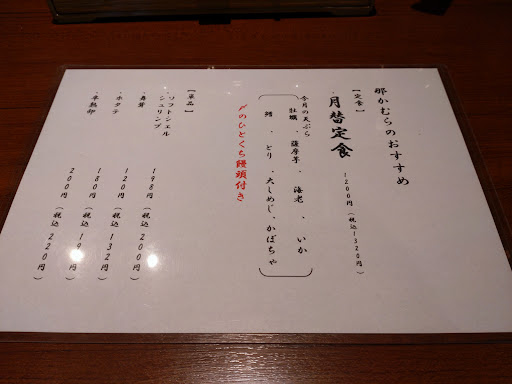 那かむらのおすすめ
【定食】
・月替定食 1200円(税込1320円)
今月の天ぷら
牡蠣、薩摩芋、海老、いか
鱈、とり、大しめじ、かぼちゃ
〆のひとくち饅頭付き
【単品】
・ソフトシェル
シュリンプ
・舞茸 120円(税込132円)
・ホタテ 180円
・半熟卵 200円(税込220円)